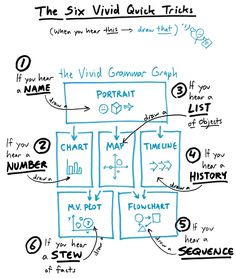 The Six Vivid Quick Tricks
(When you hear this → draw that)
①
If you
hear a
NAME
draw a
the Vivid Grammar Graph
PORTRAIT
③
If you
hear a
LIST
of objects
draw a
②
If you
hear a
NUMBER
draw a
CHART
MAP
TIMELINE
④
If you
hear a
HISTORY
draw a
M.V. PLOT
FLOWCHART
⑥
If you
hear a
STEW
of facts
draw a
⑤
If you
hear a
SEQUENCE
draw a